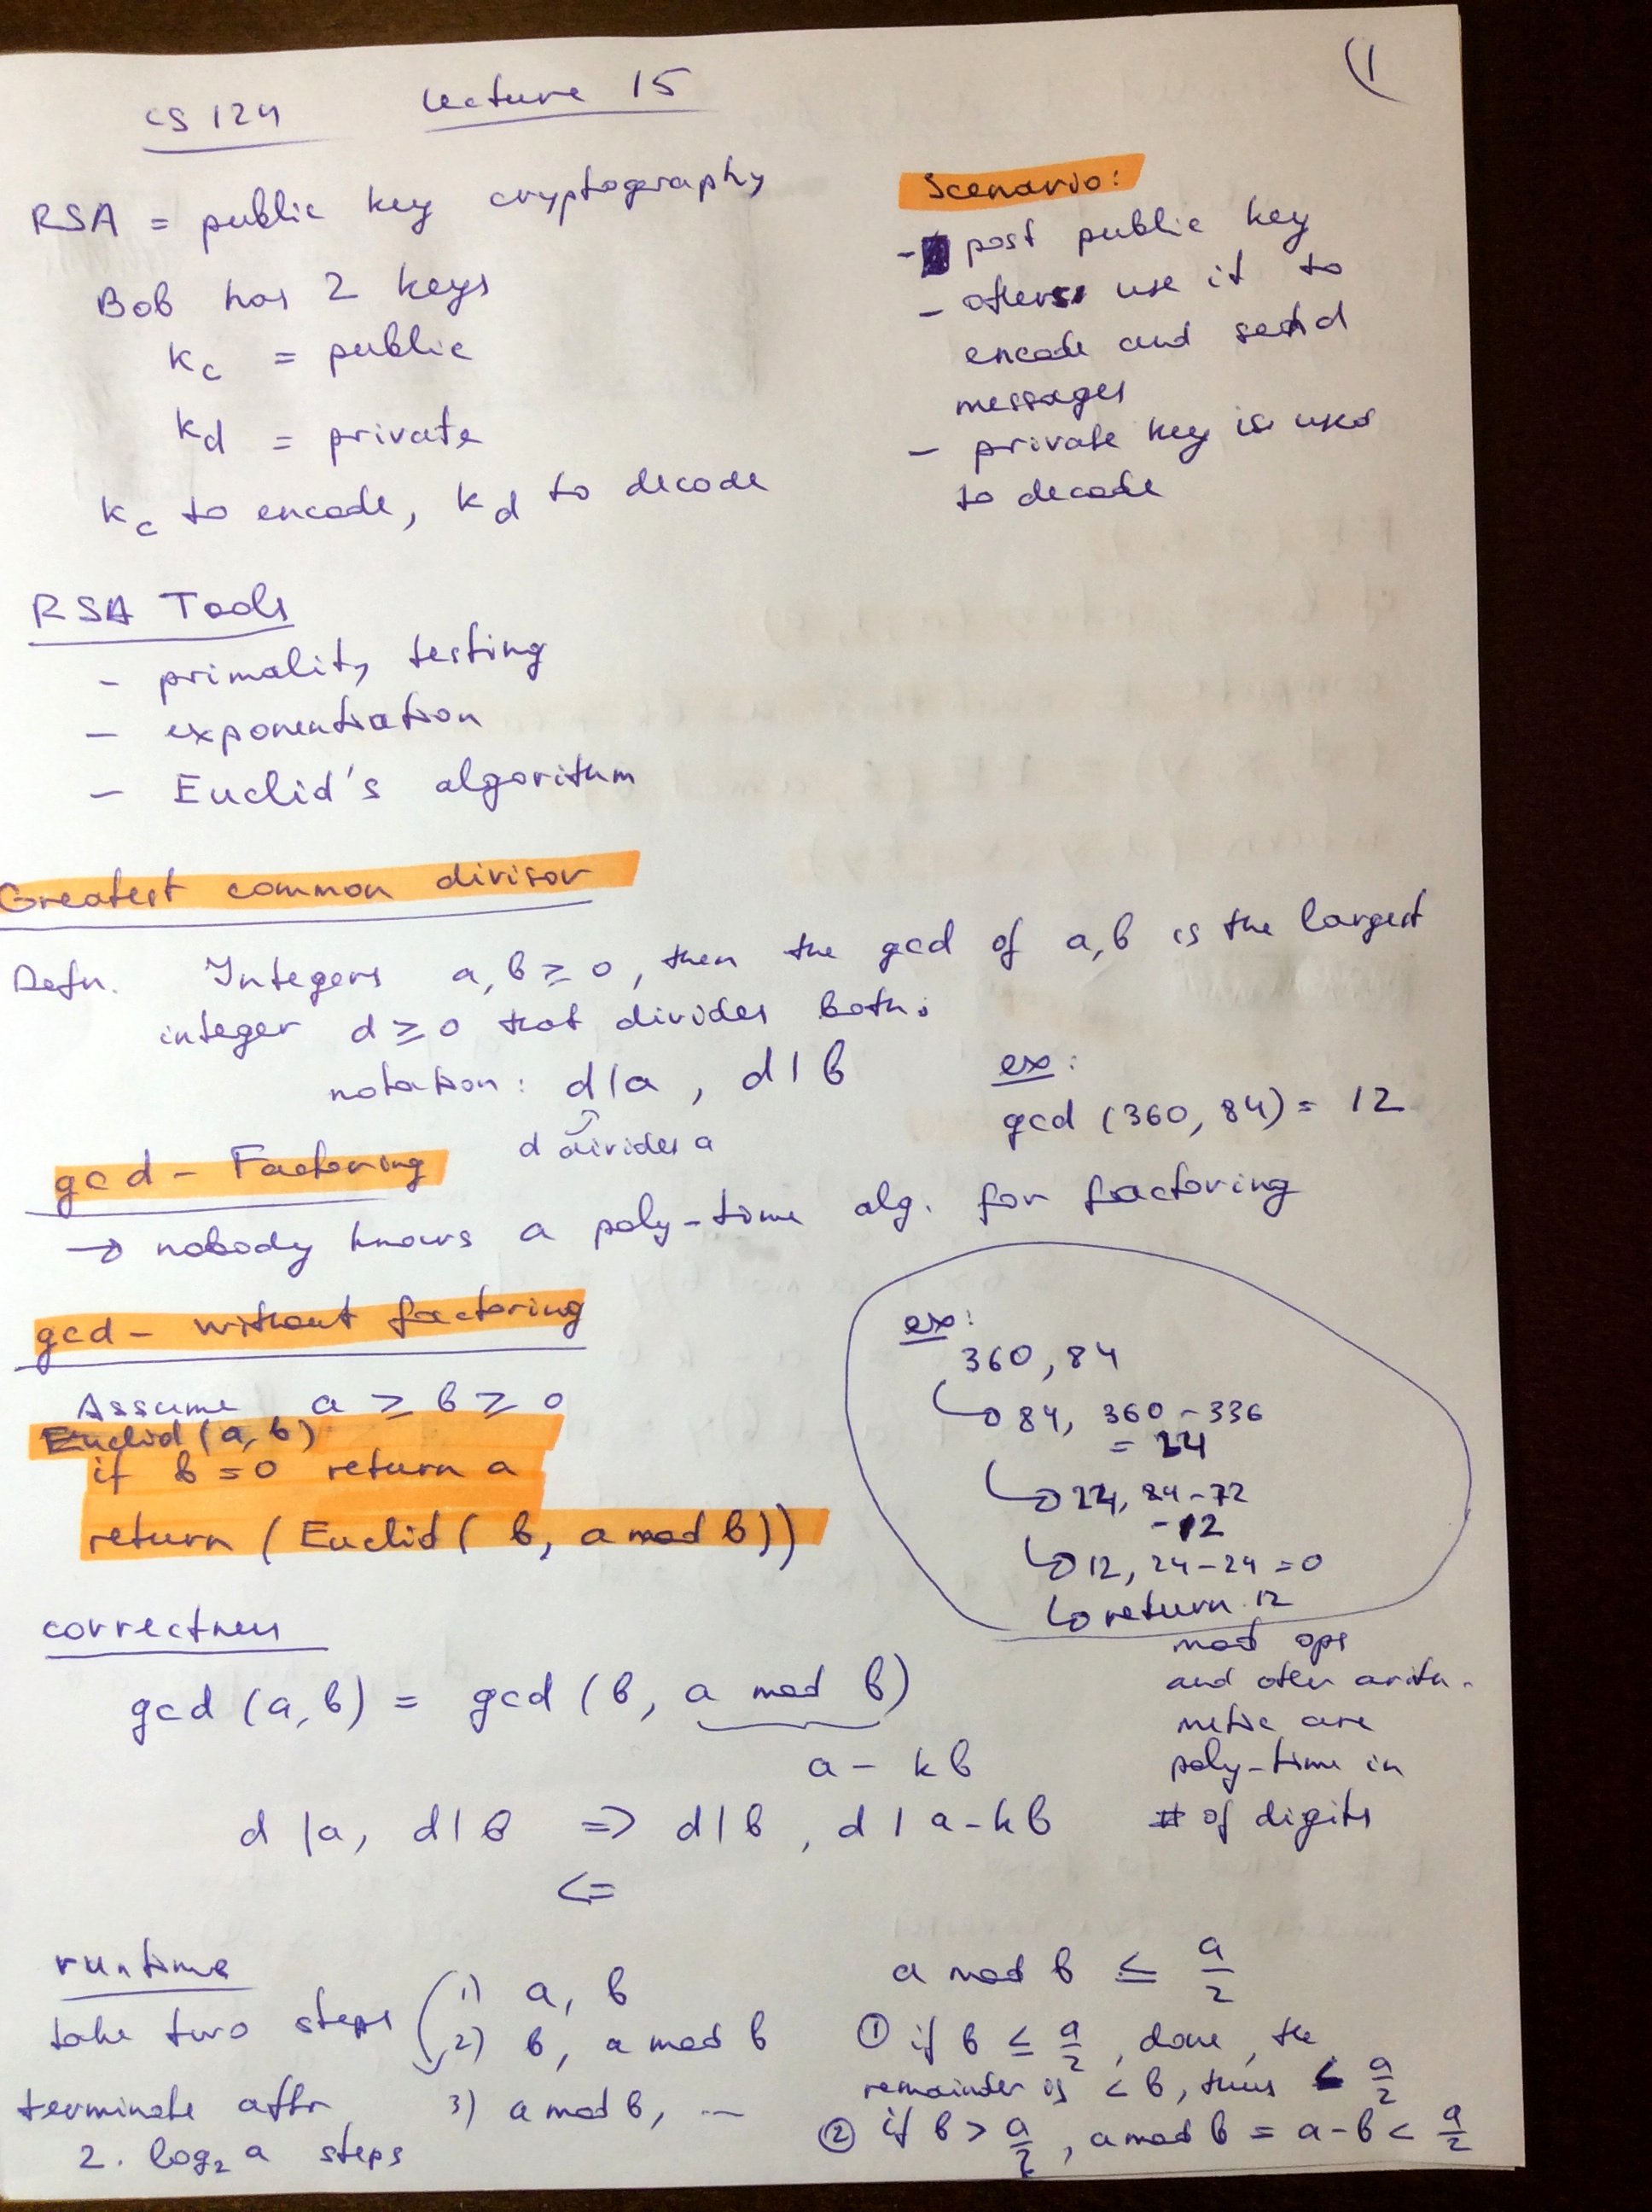 (1
CS 124 Lecture 15
RSA = public key cryptography
Bob has 2 keys
kc = public
kd = private
kc to encode, kd to decode
Scenario:
- post public key
- others use it to
encode and send
messages
- private key is used
to decode
RSA Tools
- primality testing
- exponentiation
- Euclid's algorithm
Greatest common divisor
Defn. Integers a, b ≥ 0, then the gcd of a,b is the largest
integer d ≥ 0 that divides both.
notation: d|a , d|b
d divides a
ex:
gcd (360, 84) = 12
gcd - Factoring
→ nobody knows a poly-time alg. for factoring
gcd - without factoring
Assume a ≥ b ≥ 0
Euclid(a, b)
if b = 0 return a
return (Euclid( b, a mod b))
ex:
360, 84
↳ 84, 360 - 336
= 24
↳ 24, 84-72
-12
↳ 12, 24-24 = 0
↳ return 12
mod ops
and other arith-
metic are
poly-time in
# of digits
correctness
gcd (a, b) = gcd (b, a mod b)
a - kb
d|a, d|b => d|b, d|a-kb
<=
runtime
take two steps
1) a, b
2) b, a mod b
3) a mod b, ...
terminate aftr
2. log₂ a steps
a mod b ≤ a/2
① if b ≤ a/2, done, the
remainder is < b, thus < a/2
② if b > a/2, a mod b = a-b < a/2